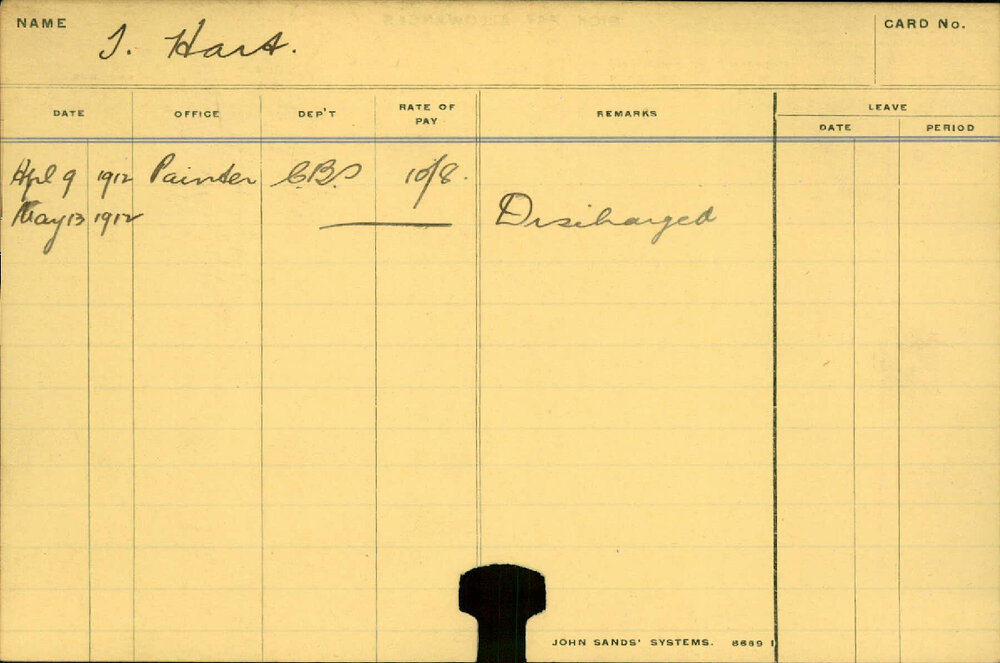 NAME T. Hart. CARD No.
DATE OFFICE DEP'T RATE OF PAY REMARKS LEAVE
DATE PERIOD
Apl 9 1912 Painter C.B.S 10/8.
May 13 1912 Discharged
JOHN SANDS' SYSTEMS. 6689